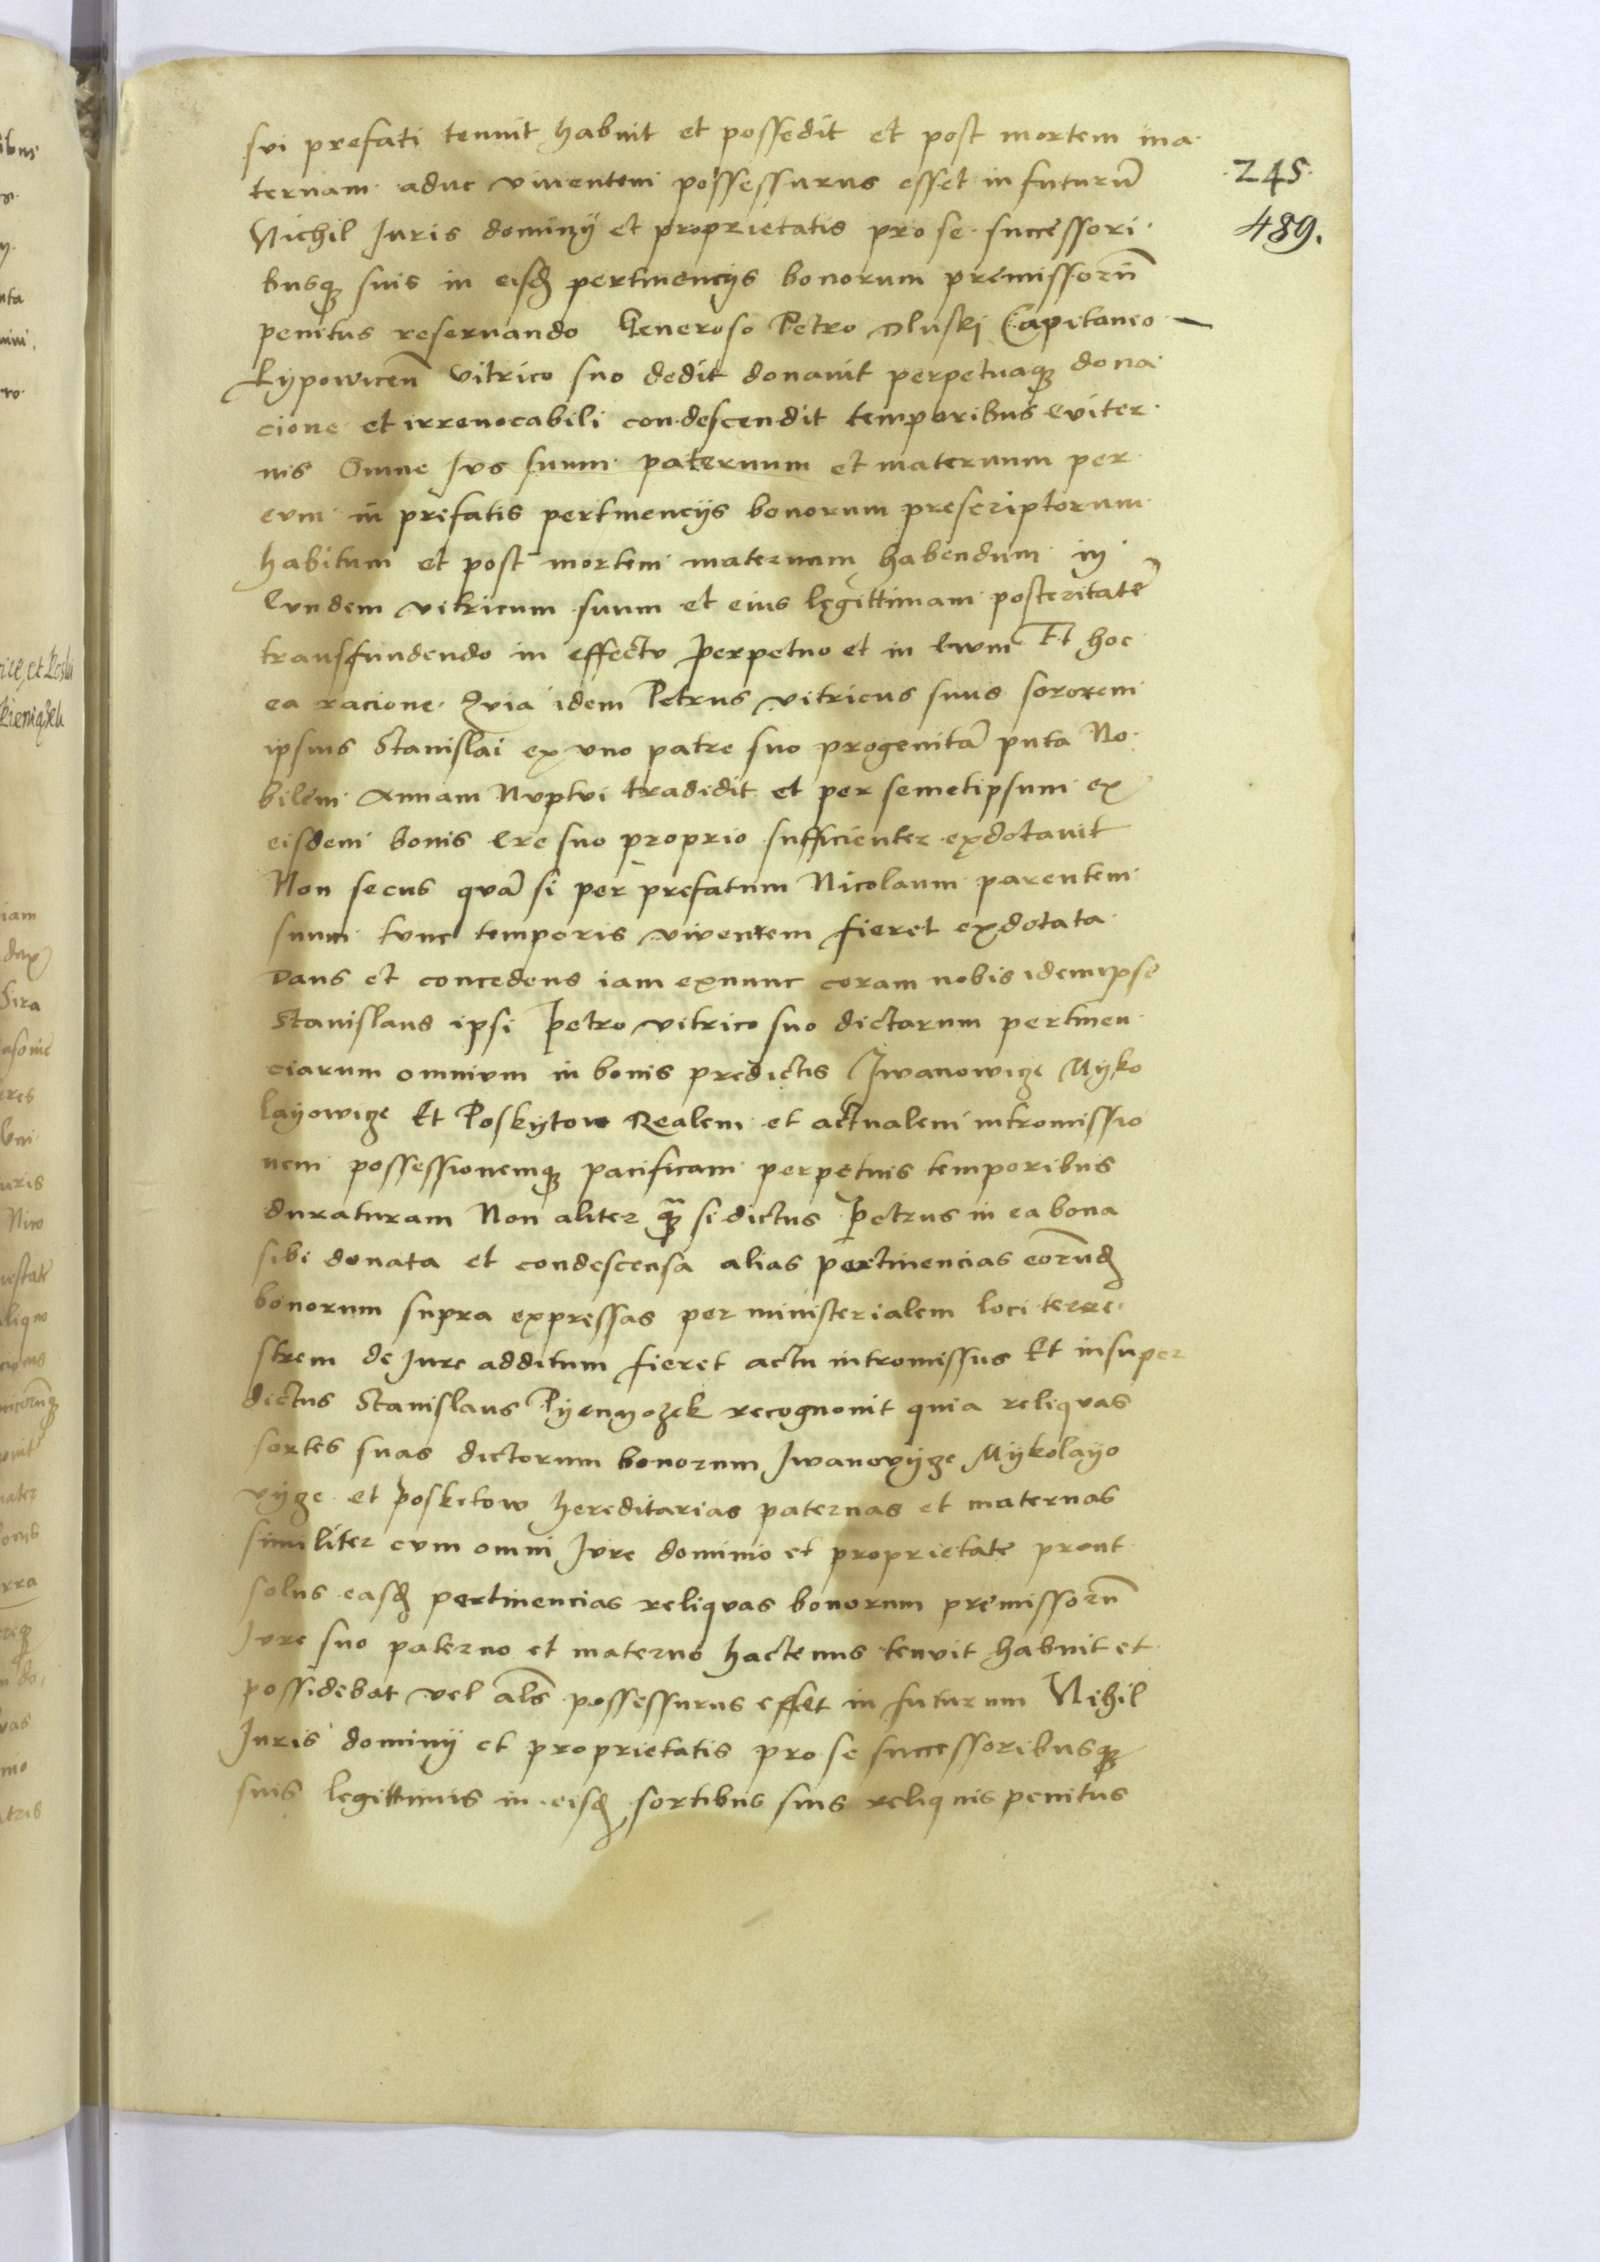 245.
489.
sui prefati tenuit habuit et possedit et post mortem ma
ternam aduc viventem possessurus esset in futurū
Nichil Iuris dominij et proprietatis pro se successori
busq̃ suis in eisđ pertinencijs bonorum premissorū
penitus reservando Generoso Petro Dluski Capitaneo
Lypowiceñ vitrico suo dedit donavit perpetuaq̃ dona
cione et irrevocabili condescendit temporibus eviter
nis Omne Ius suum paternum et maternum per
eum in prefatis pertinencijs bonorum prescriptorum
habitum et post mortem maternam habendum in
Eundem vitricum suum et eius legittimam posteritatē
transfundendo in effectu perpetuo et in Ewm Et hoc
ea racione Quia idem Petrus vitricus suus sororem
ipsius Stanislai ex uno patre suo progenitā puta No
bilem Annam Nuptui tradidit et per semetipsum ex
eisdem bonis Ere suo proprio sufficienter exdotavit
Non secus quā si per prefatum Nicolaum parentem
suum tunc temporis viventem fieret exdotata
Dans et concedens iam exnunc coram nobis idem ipse
Stanislaus ipsi Petro vitrico suo dictarum pertinen
ciarum omnium in bonis predictis Iwanowize Myko
layowize Et Poskytow Realem et actualem intromissio
nem possessionemq̃ pacificam perpetuis temporibus
duraturam Non aliter q̃ si dictus Petrus in ea bona
sibi donata et condescensa alias pertinencias eorunđ
bonorum supra expressas per ministerialem loci terre
strem de Iure additum fieret actu intromissus Et insuper
dictus Stanislaus Pyenyozek recognovit quia reliquas
sortes suas dictorum bonorum Iwanovyze Mykolayo
vyze et Poskitow hereditarias paternas et maternas
similiter cum omni Iure dominio et proprietate prout
solus easđ pertinencias reliquas bonorum premissorū
Iure suo paterno et materno hactenus tenuit habuit et
possidebat vel als̄ possessurus esset in futurum Nihil
Iuris dominij et proprietatis pro se successoribusq̃
suis legittimis in eisđ sortibus suis reliquis penitus